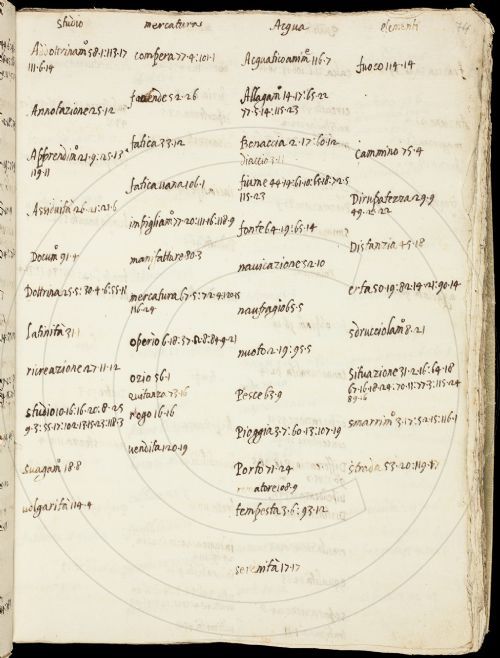 studio
Addottrinam.to 58·1:113·17
111·6·14
Annotazione 25·12
Apprendim.to 21·9:25·13
119·11
Assiduità 26·21:21·6
Docum.to 91·4
Dottrina 25·5:30·4·6:55·11
Latinità 311
ricreazione 27·11·12
studio 10·16:16·20:8·25
suagam.to 18·8
volgarità 114·4
mercatura
compera 77·4:101·1
faccende 52·26
fatica 33·12
fatica uana 106·1
impigliam.to 77·20:111·16:118·9
manifattura 80·3
mercatura 67·5:72·4:120·15
116·24
operio 6·18:57·12·8:84·9·21
ozio 56·1
quitanza 73·16
rogo 16·16
vendita 120·19
Acqua
Acquatico anim.e 116·7
Allagam.to 14·17:65·22
77·5·14:115·23
Bonaccia 2·17:60·12
diaccio 3·11
fiume 44·14:61·10:65·18:72·5
115·23
fonte 64·19:65·14
nauicazione 52·10
naufragio 65·5
nuoto 2·19:95·5
Pesce 63·9
Pioggia 3·7:60·13:107·19
Porto 71·24
tempesta 3·6:93·12
serenità 17·17
elementi
74
fuoco 114·14
cammino 75·4
Dirupatezza 29·9
Distanzia 45·18
erta 50·19:82·14·21:90·14
sdrucciolam.to 8·21
Situazione 31·2·16:64·18
67·16·18·24:70·11:77·3:115·24
89·16
smarrim.to 3·17:52·15:116·1
strada 53·20:119·17